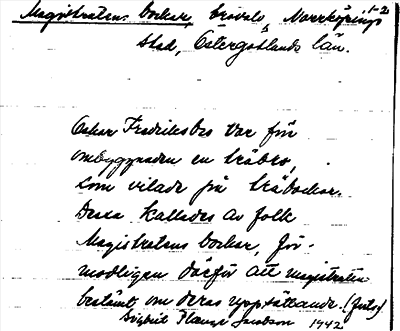 1-2
Magistratens bockar, trävals, Norrköpings
stad, Östergötlands län.
Oskar Fredriksbro var för
ombyggnaden en träbro,
som vilade på träbockar.
Dessa kallades av folk
Magistratens bockar, för-
modligen därför att magistraten
bestämt om deras uppsättande. (Forts.)
Sigbrit Jacobson 1942